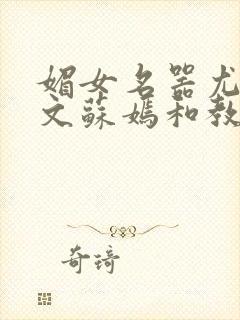 媚女名器尤
文蘇媽和教
奇琦